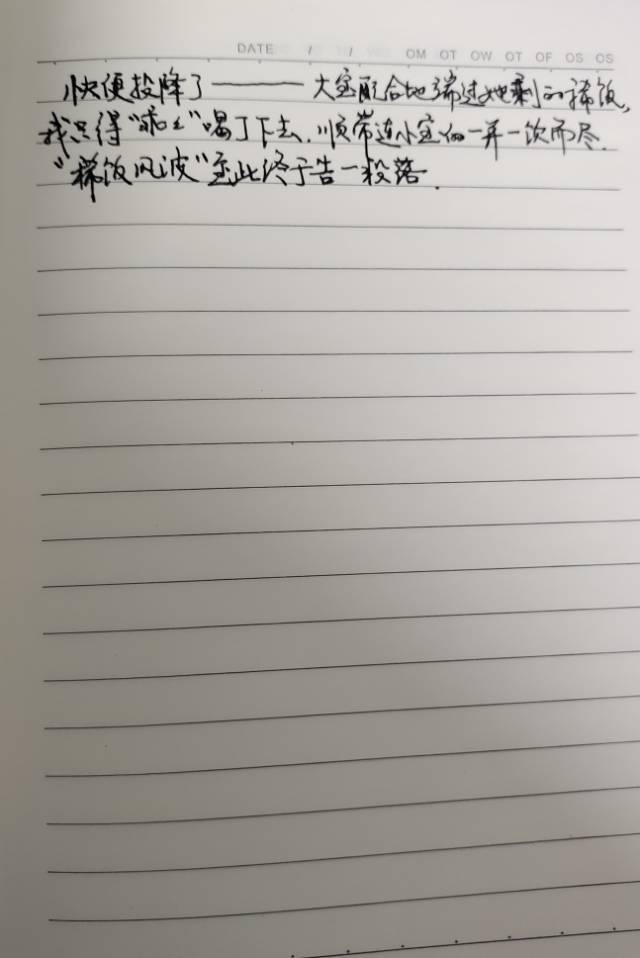 DATE / / OM OT OW OT OF OS OS
快便投降了———大宝配合地端过她剩的稀饭,
我只得“乖乖”喝了下去.顺带连小宝的一并一饮而尽.
“稀饭风波”至此终于告一段落.